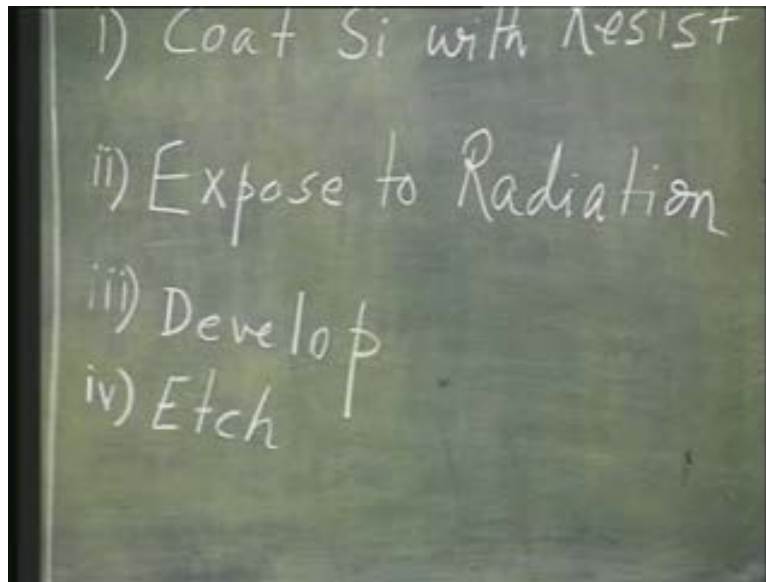 i) Coat Si with Resist
ii) Expose to Radiation
iii) Develop
iv) Etch